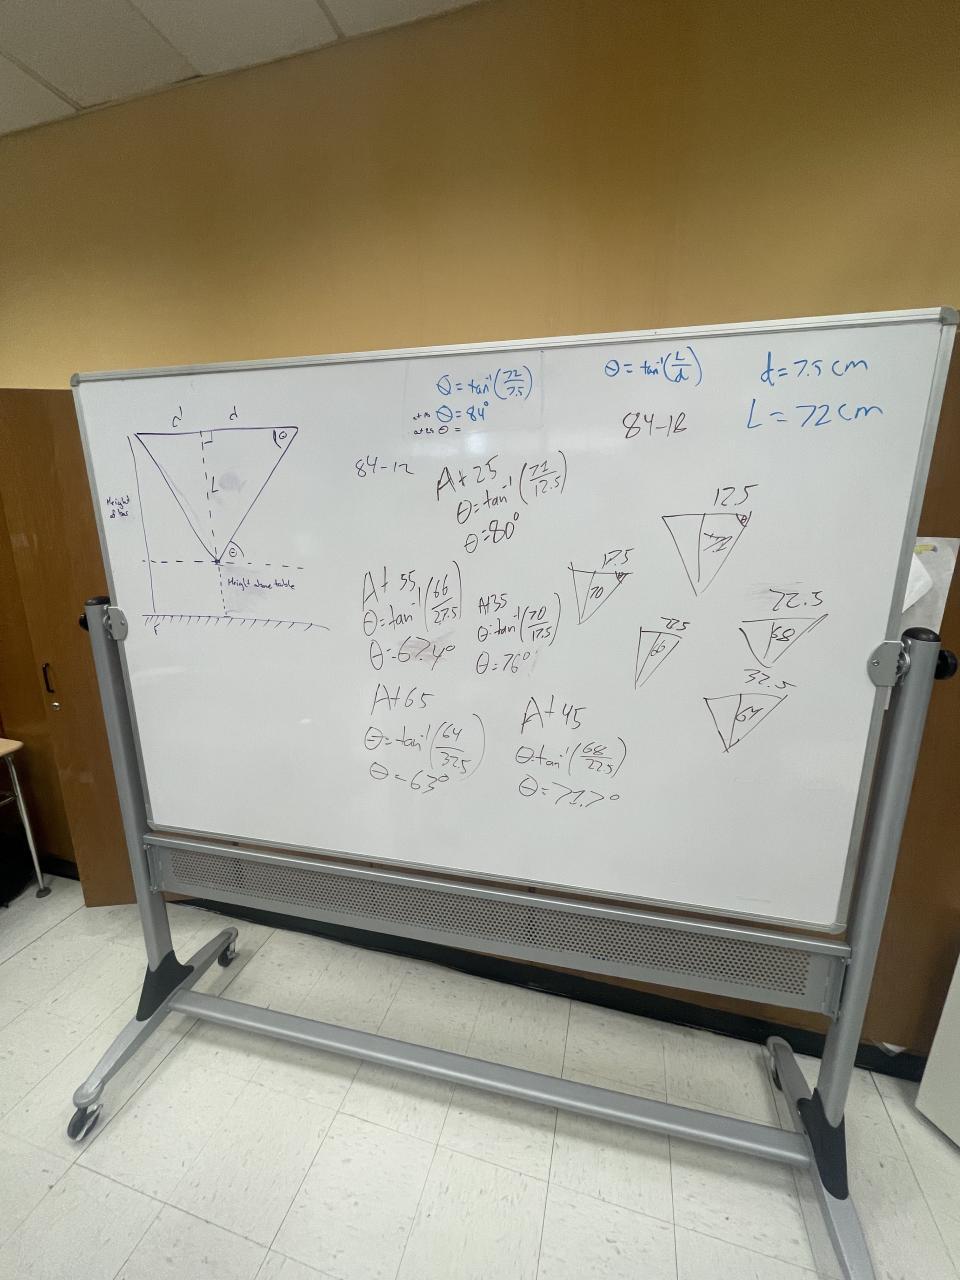 θ = tan⁻¹(72/7.5)
θ = 84°
θ =
θ = tan⁻¹(L/d)
d = 7.5 cm
L = 72 cm
84-18
d
d
θ
L
θ
Height above table
84-12
At 25
θ = tan⁻¹(71/12.5)
θ = 80°
12.5
θ
At 55
θ = tan⁻¹(66/27.5)
θ = 67.4°
At 35
θ = tan⁻¹(70/17.5)
θ = 76°
17.5
70
66
22.5
68
At 65
θ = tan⁻¹(64/32.5)
θ = 63°
At 45
θ = tan⁻¹(68/22.5)
θ = 71.7°
32.5
64